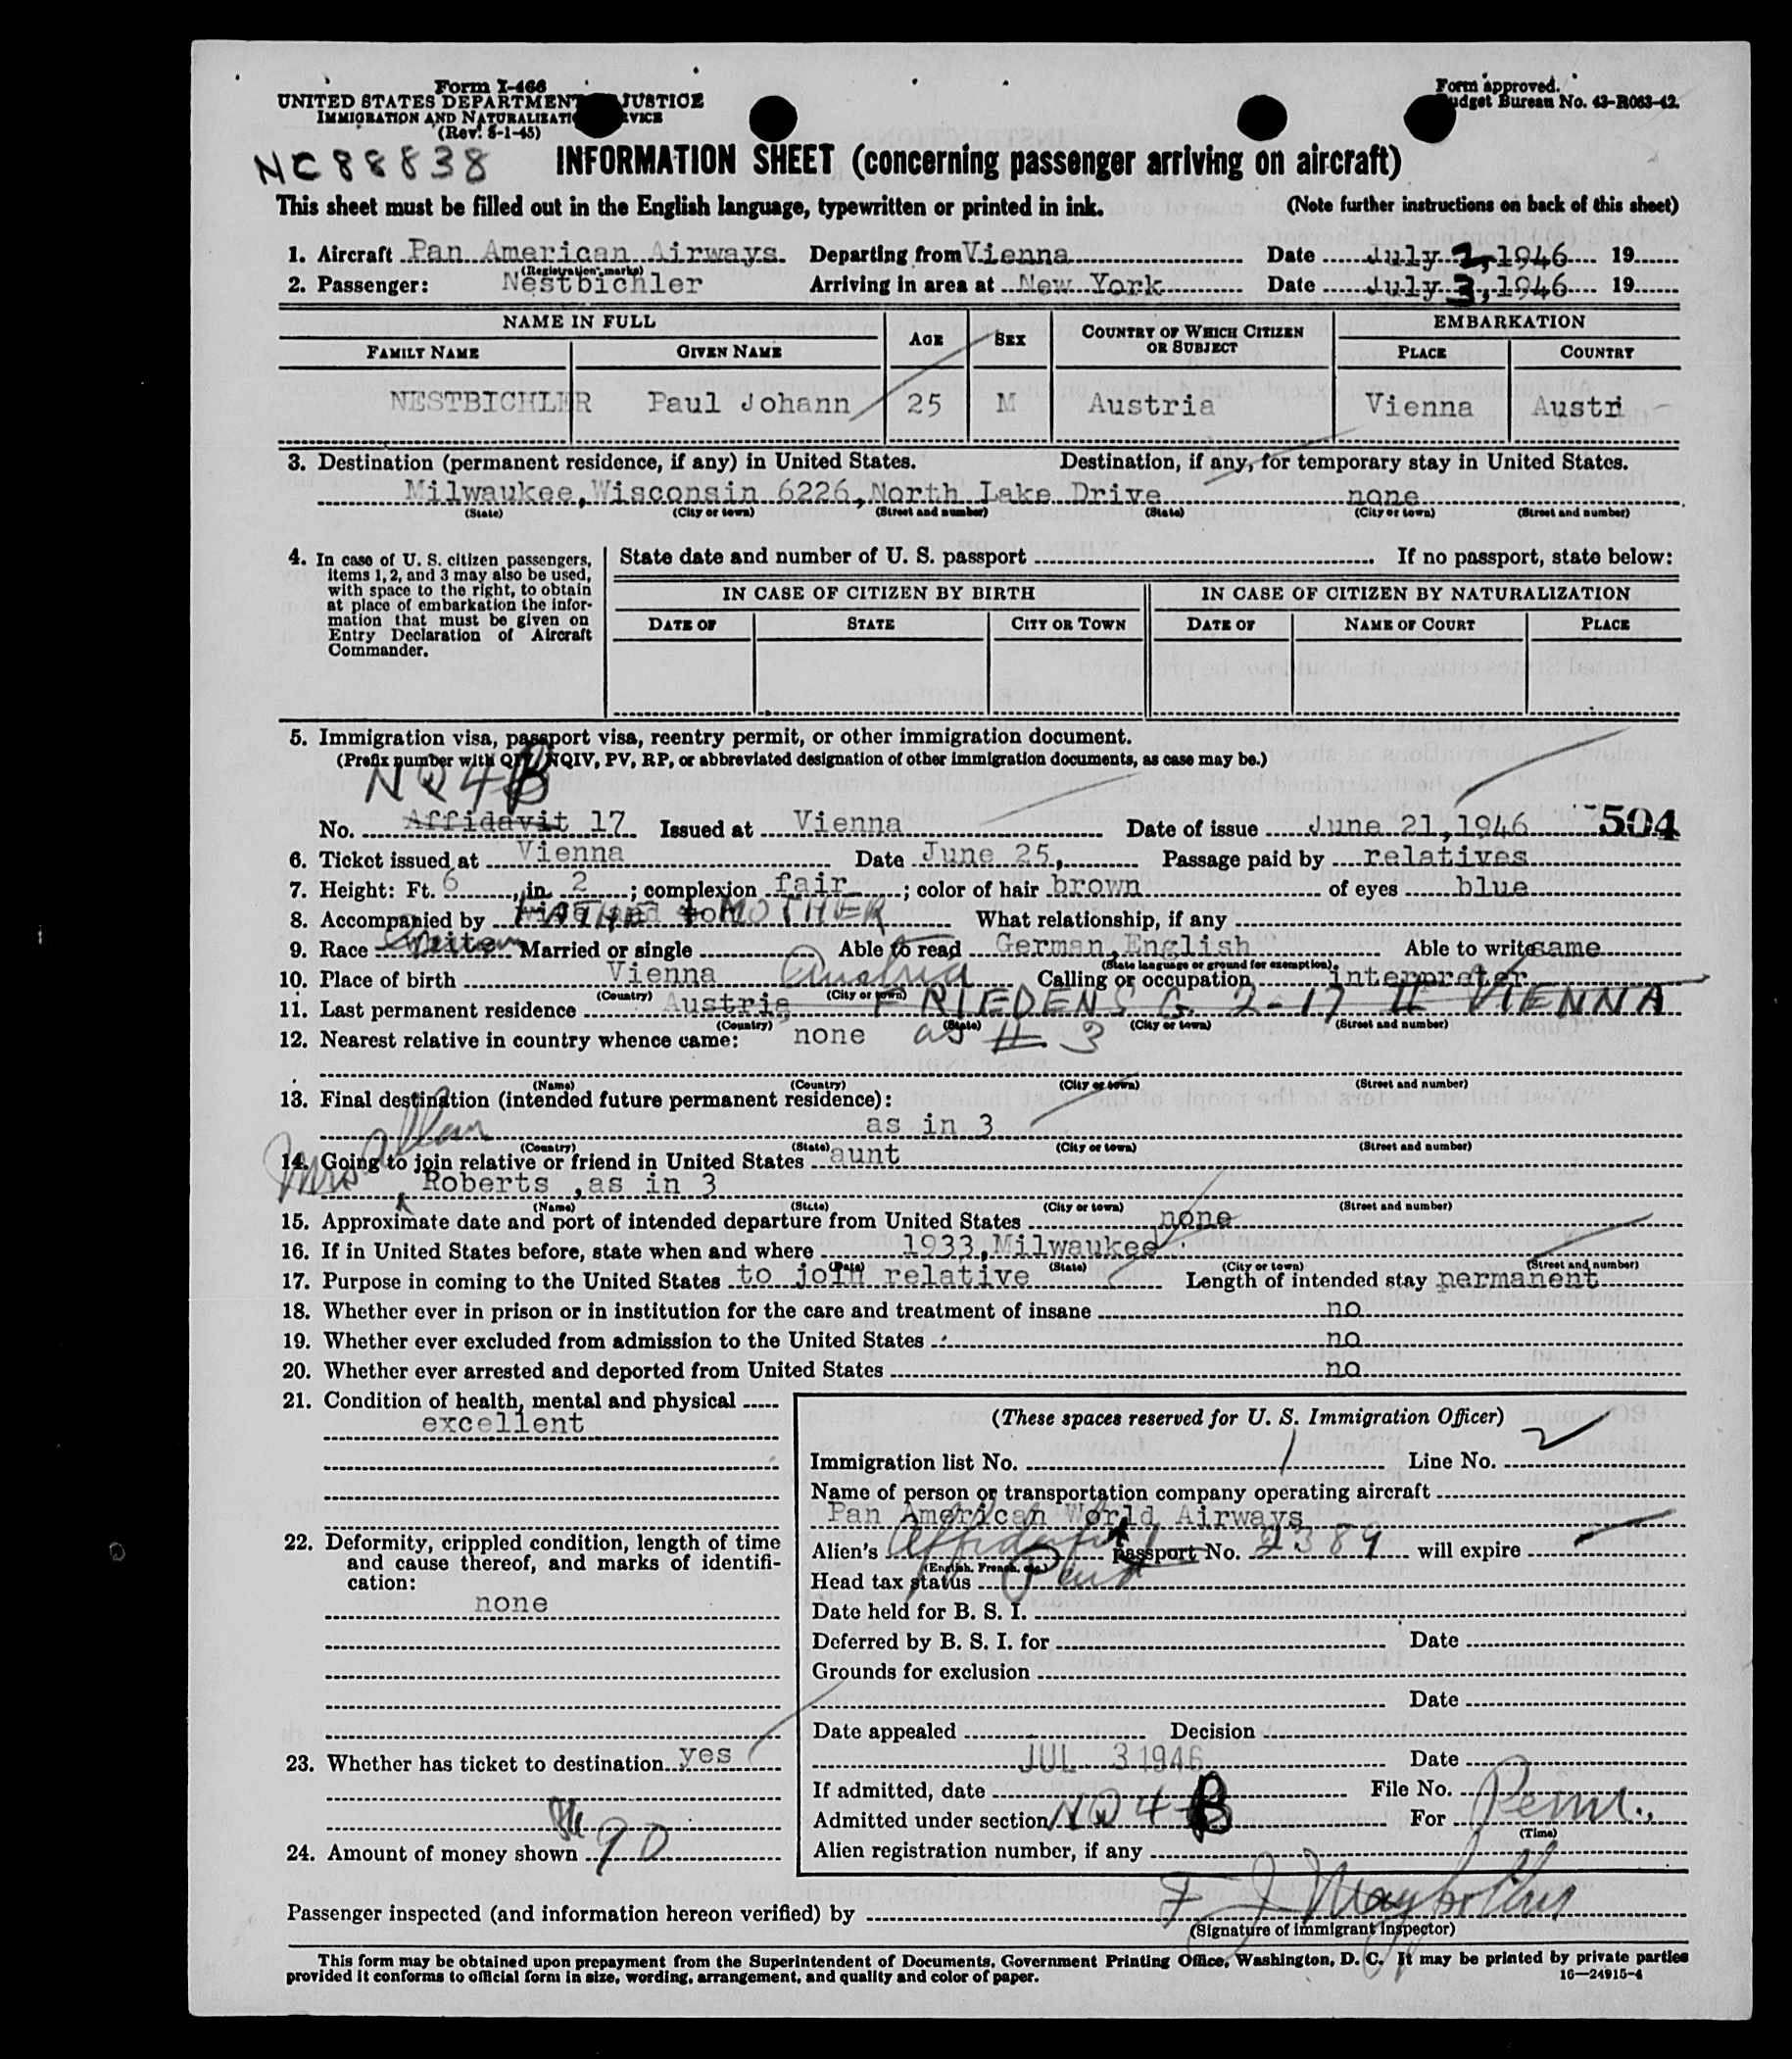 Form I-466
UNITED STATES DEPARTMENT JUSTICE
IMMIGRATION AND NATURALIZATI RVICE
(Rev. 5-1-45)
Form approved.
udget Bureau No. 43-R063-42.
NC88838
INFORMATION SHEET (concerning passenger arriving on aircraft)
This sheet must be filled out in the English language, typewritten or printed in ink. (Note further instructions on back of this sheet)
1. Aircraft Pan American Airways. Departing from Vienna Date July 2, 1946 19
(Registration marks)
2. Passenger: Nestbichler Arriving in area at New York Date July 3, 1946 19
NAME IN FULL AGE SEX COUNTRY OF WHICH CITIZEN OR SUBJECT EMBARKATION
FAMILY NAME GIVEN NAME PLACE COUNTRY
NESTBICHLER Paul Johann 25 M Austria Vienna Austri
3. Destination (permanent residence, if any) in United States. Destination, if any, for temporary stay in United States.
Milwaukee, Wisconsin 6226, North Lake Drive none
(State) (City or town) (Street and number) (State) (City or town) (Street and number)
4. In case of U. S. citizen passengers, items 1, 2, and 3 may also be used, with space to the right, to obtain at place of embarkation the information that must be given on Entry Declaration of Aircraft Commander.
State date and number of U. S. passport If no passport, state below:
IN CASE OF CITIZEN BY BIRTH IN CASE OF CITIZEN BY NATURALIZATION
DATE OF STATE CITY OR TOWN DATE OF NAME OF COURT PLACE
5. Immigration visa, passport visa, reentry permit, or other immigration document.
(Prefix number with QIV, NQIV, PV, RP, or abbreviated designation of other immigration documents, as case may be.)
NQ4B
No. Affidavit 17 Issued at Vienna Date of issue June 21, 1946 504
6. Ticket issued at Vienna Date June 25, Passage paid by relatives
7. Height: Ft. 6, in. 2; complexion fair; color of hair brown of eyes blue
8. Accompanied by MOTHER What relationship, if any
9. Race White Married or single Able to read German, English Able to write same
(State language or ground for exemption)
10. Place of birth Vienna Austria Calling or occupation interpreter
(Country) (City or town)
11. Last permanent residence Austria FRIEDENS G. 2-17 II VIENNA
(Country) (State) (City or town) (Street and number)
12. Nearest relative in country whence came: none as # 3
(Name) (Country) (City or town) (Street and number)
13. Final destination (intended future permanent residence):
as in 3
(Country) (State) (City or town) (Street and number)
14. Going to join relative or friend in United States aunt
Mrs Allen Roberts, as in 3
(Name) (State) (City or town) (Street and number)
15. Approximate date and port of intended departure from United States none
16. If in United States before, state when and where 1933, Milwaukee
(Date) (State) (City or town) (Street and number)
17. Purpose in coming to the United States to join relative Length of intended stay permanent
18. Whether ever in prison or in institution for the care and treatment of insane no
19. Whether ever excluded from admission to the United States no
20. Whether ever arrested and deported from United States no
21. Condition of health, mental and physical
excellent
22. Deformity, crippled condition, length of time and cause thereof, and marks of identification:
none
23. Whether has ticket to destination yes
24. Amount of money shown 90
(These spaces reserved for U. S. Immigration Officer)
Immigration list No. 1 Line No. 2
Name of person or transportation company operating aircraft
Pan American World Airways
Alien's Affidavit passport No. 2389 will expire
(English, French, etc.)
Head tax status Paid
Date held for B. S. I.
Deferred by B. S. I. for Date
Grounds for exclusion
Date
Date appealed Decision
JUL 3 1946 Date
If admitted, date File No.
Admitted under section NQ 4-B For Perm.
(Time)
Alien registration number, if any
Passenger inspected (and information hereon verified) by F J
(Signature of immigrant inspector)
This form may be obtained upon prepayment from the Superintendent of Documents, Government Printing Office, Washington, D. C. It may be printed by private parties
provided it conforms to official form in size, wording, arrangement, and quality and color of paper. 16—24915-4